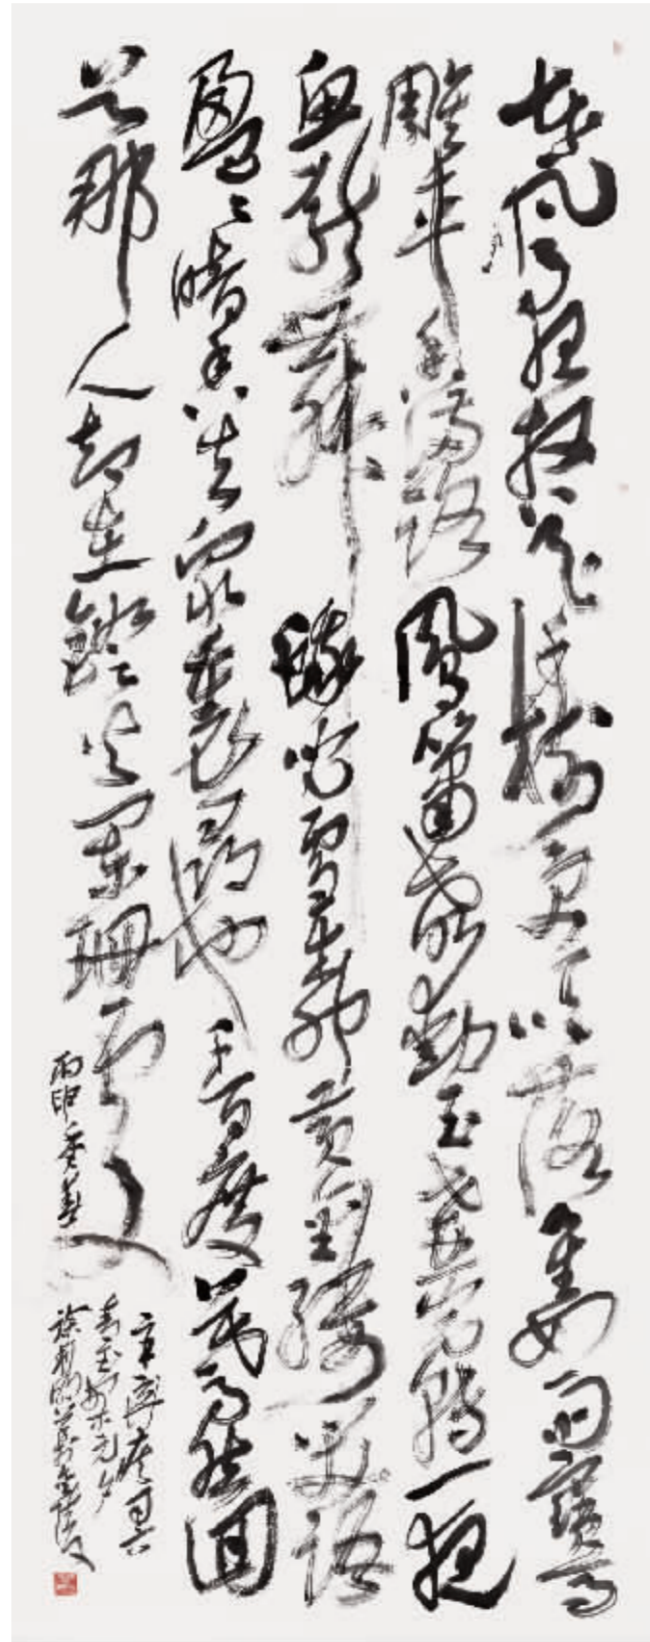 東風夜放花千樹更吹落星如雨寶馬
雕車香滿路鳳簫聲動玉壺光轉一夜
魚龍舞蛾兒雪柳黃金縷笑語
盈盈暗香去眾裏尋他千百度驀然回
首那人卻在燈火闌珊處
丙申季春
辛棄疾詞
青玉案元夕
徐利明